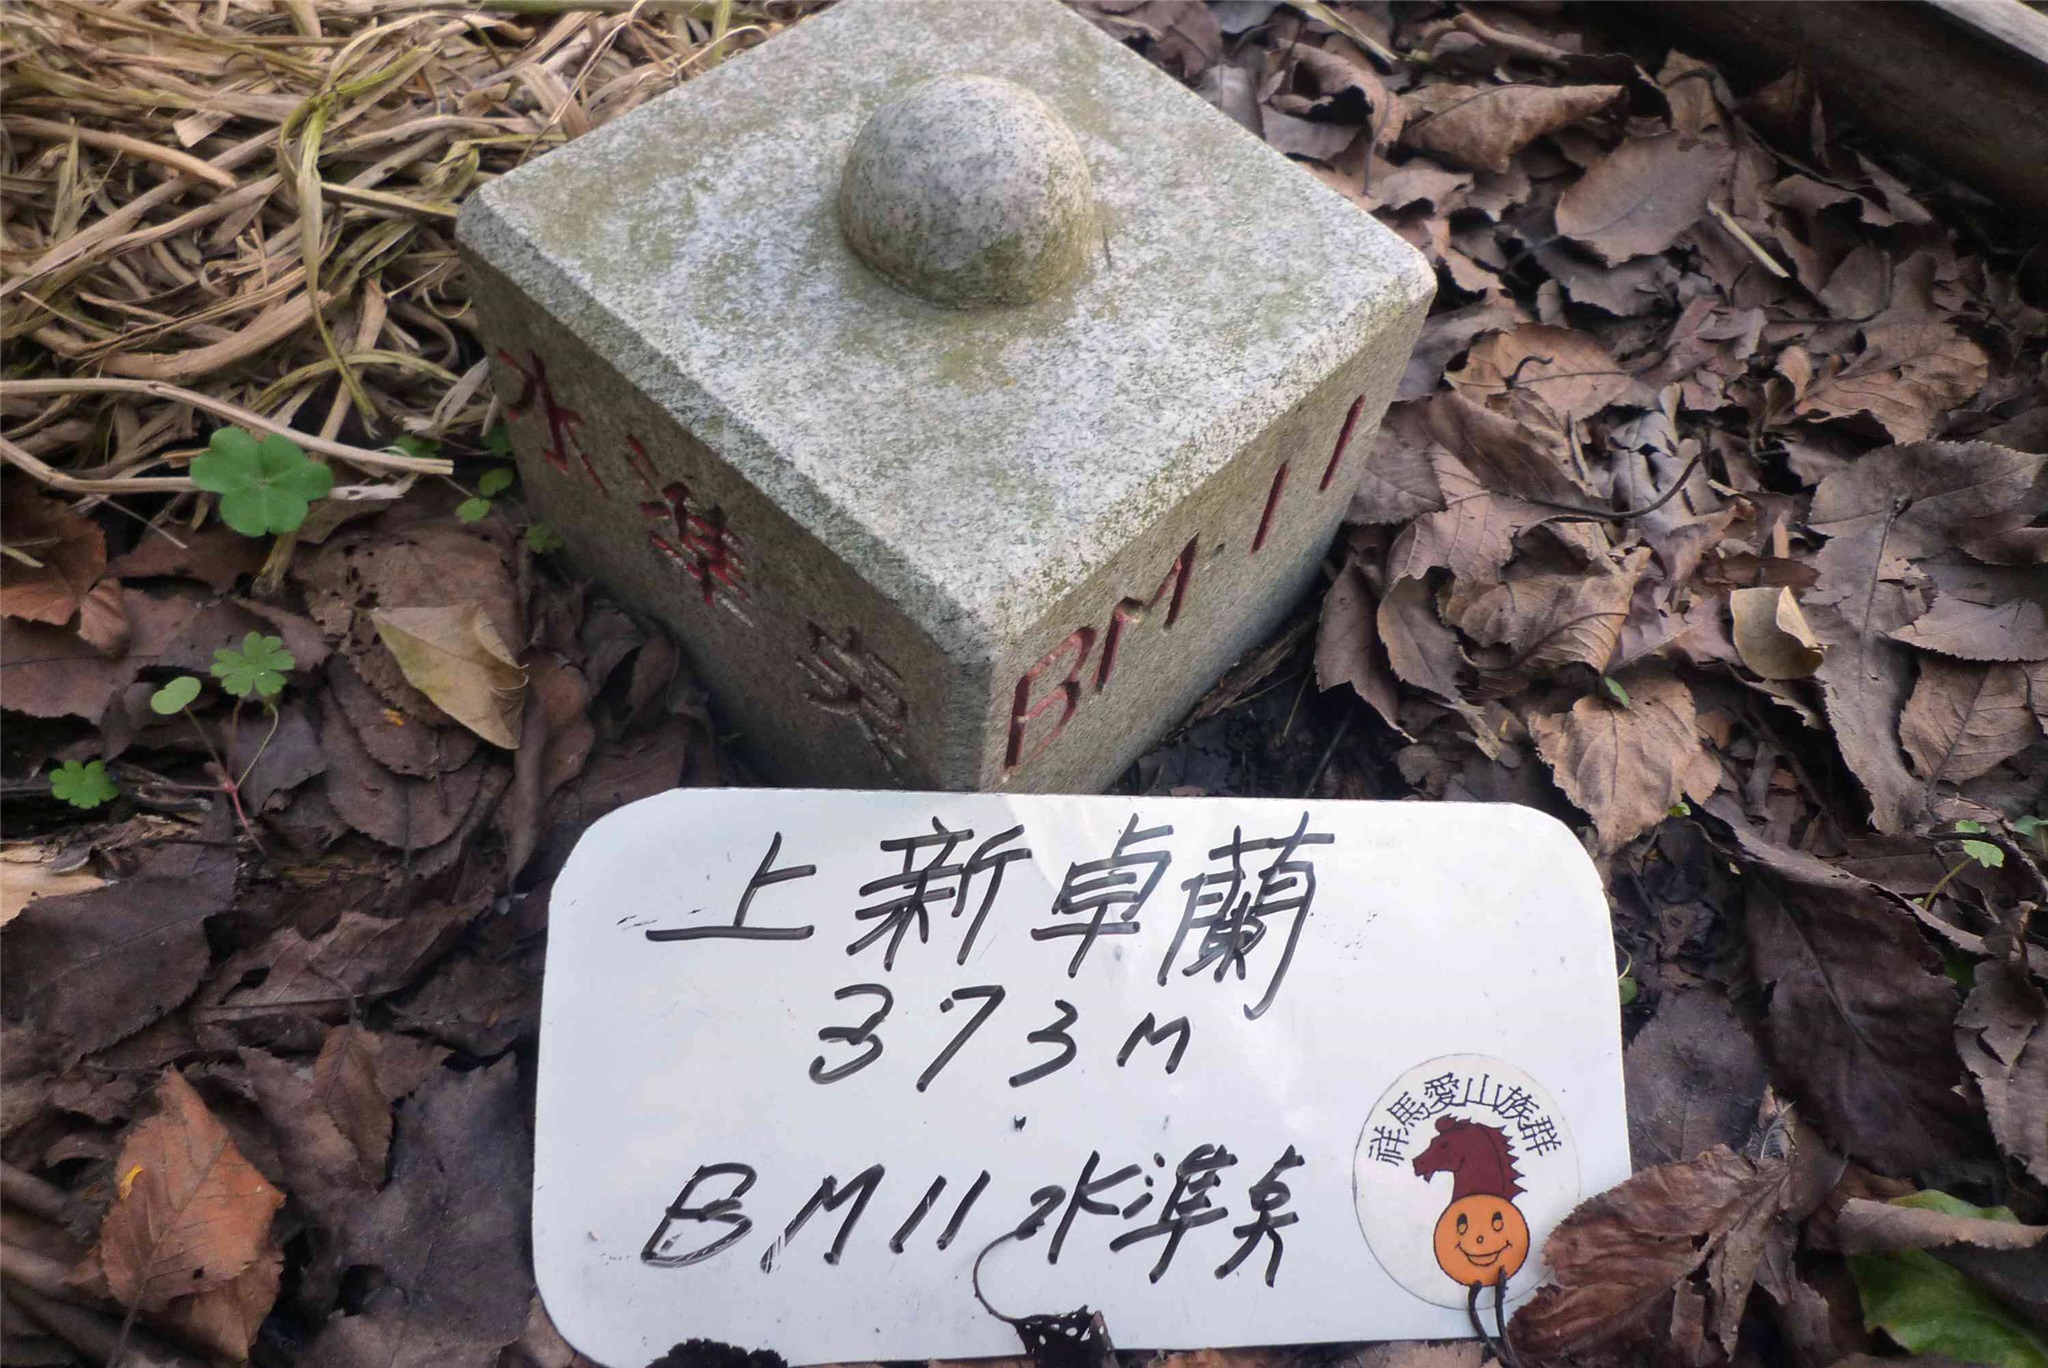 水準点
BM.11
上新卓蘭
373M
BM11水準点
祥馬愛山族群